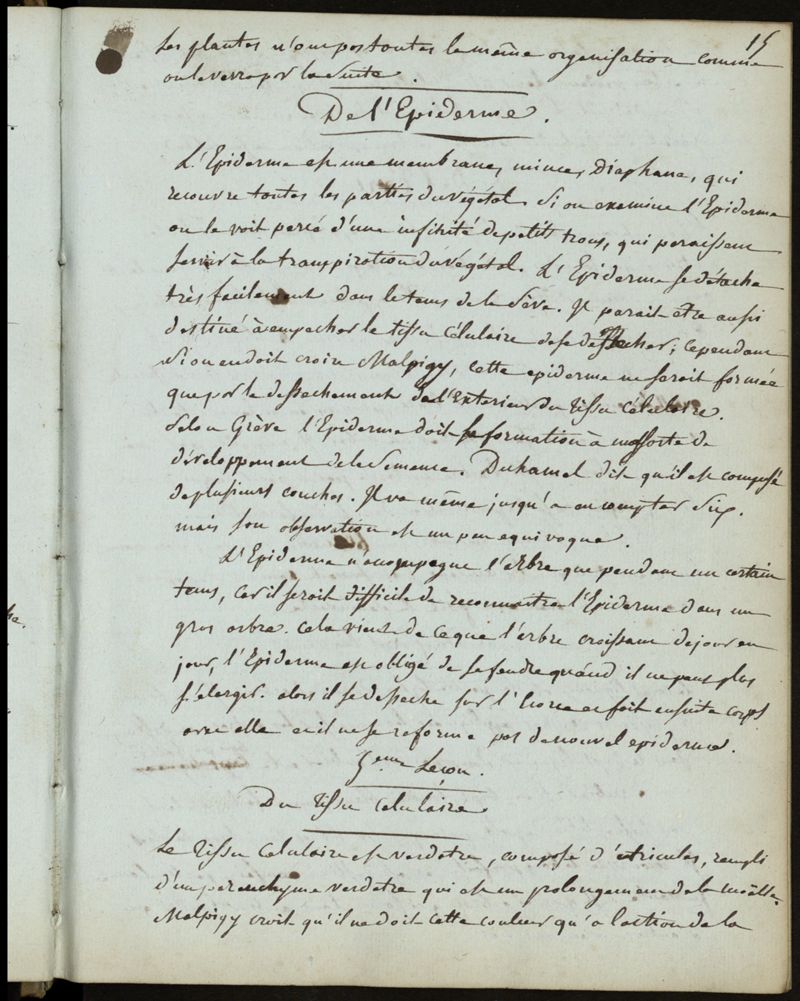 15
Les plantes n'ont pas toutes la même organisation comme
on le verra par la suite.
De l'Epiderme.
L'Epiderme est une membrane, mince, Diaphane, qui
recouvre toutes les parties du végétal. Si on examine l'Epiderme
on le voit percé d'une infinité de petits trous, qui paroissent
servir à la transpiration du végétal. L'Epiderme se détache
très facilement dans le tems de la sève. Il parait être aussi
destiné à empecher le tissu célulaire de se dessecher; cependant
si on en doit croire Malpigy, cette epiderme ne seroit formée
que par le dessechement de l'Exterieur du tissu célulaire.
Selon Grève l'Epiderme doit sa formation à une sorte de
développement de la Semence. Duhamel dit qu'il est composé
de plusieurs couches. Il va même jusqu'à en compter six.
mais son observation est un peu equivoque.
L'Epiderme n'acompagne l'arbre que pendant un certain
tems, car il seroit difficile de reconnoitre l'Epiderme dans un
gros arbre. cela vient de ce que l'arbre croissant de jour en
jour, l'Epiderme est obligé de se fendre quand il ne peut plus
s'élargir. alors il se desseche sur l'Ecorce et fait ensuite corps
avec elle et il ne se reforme pas de nouvel epiderme.
5eme Leçon.
Du Tissu Celulaire
Le Tissu Celulaire est verdatre, composé d'utricules, rempli
d'un parenchyme verdatre qui est un prolongement de la moëlle.
Malpigy croit qu'il ne doit cette couleur qu'a l'action de la